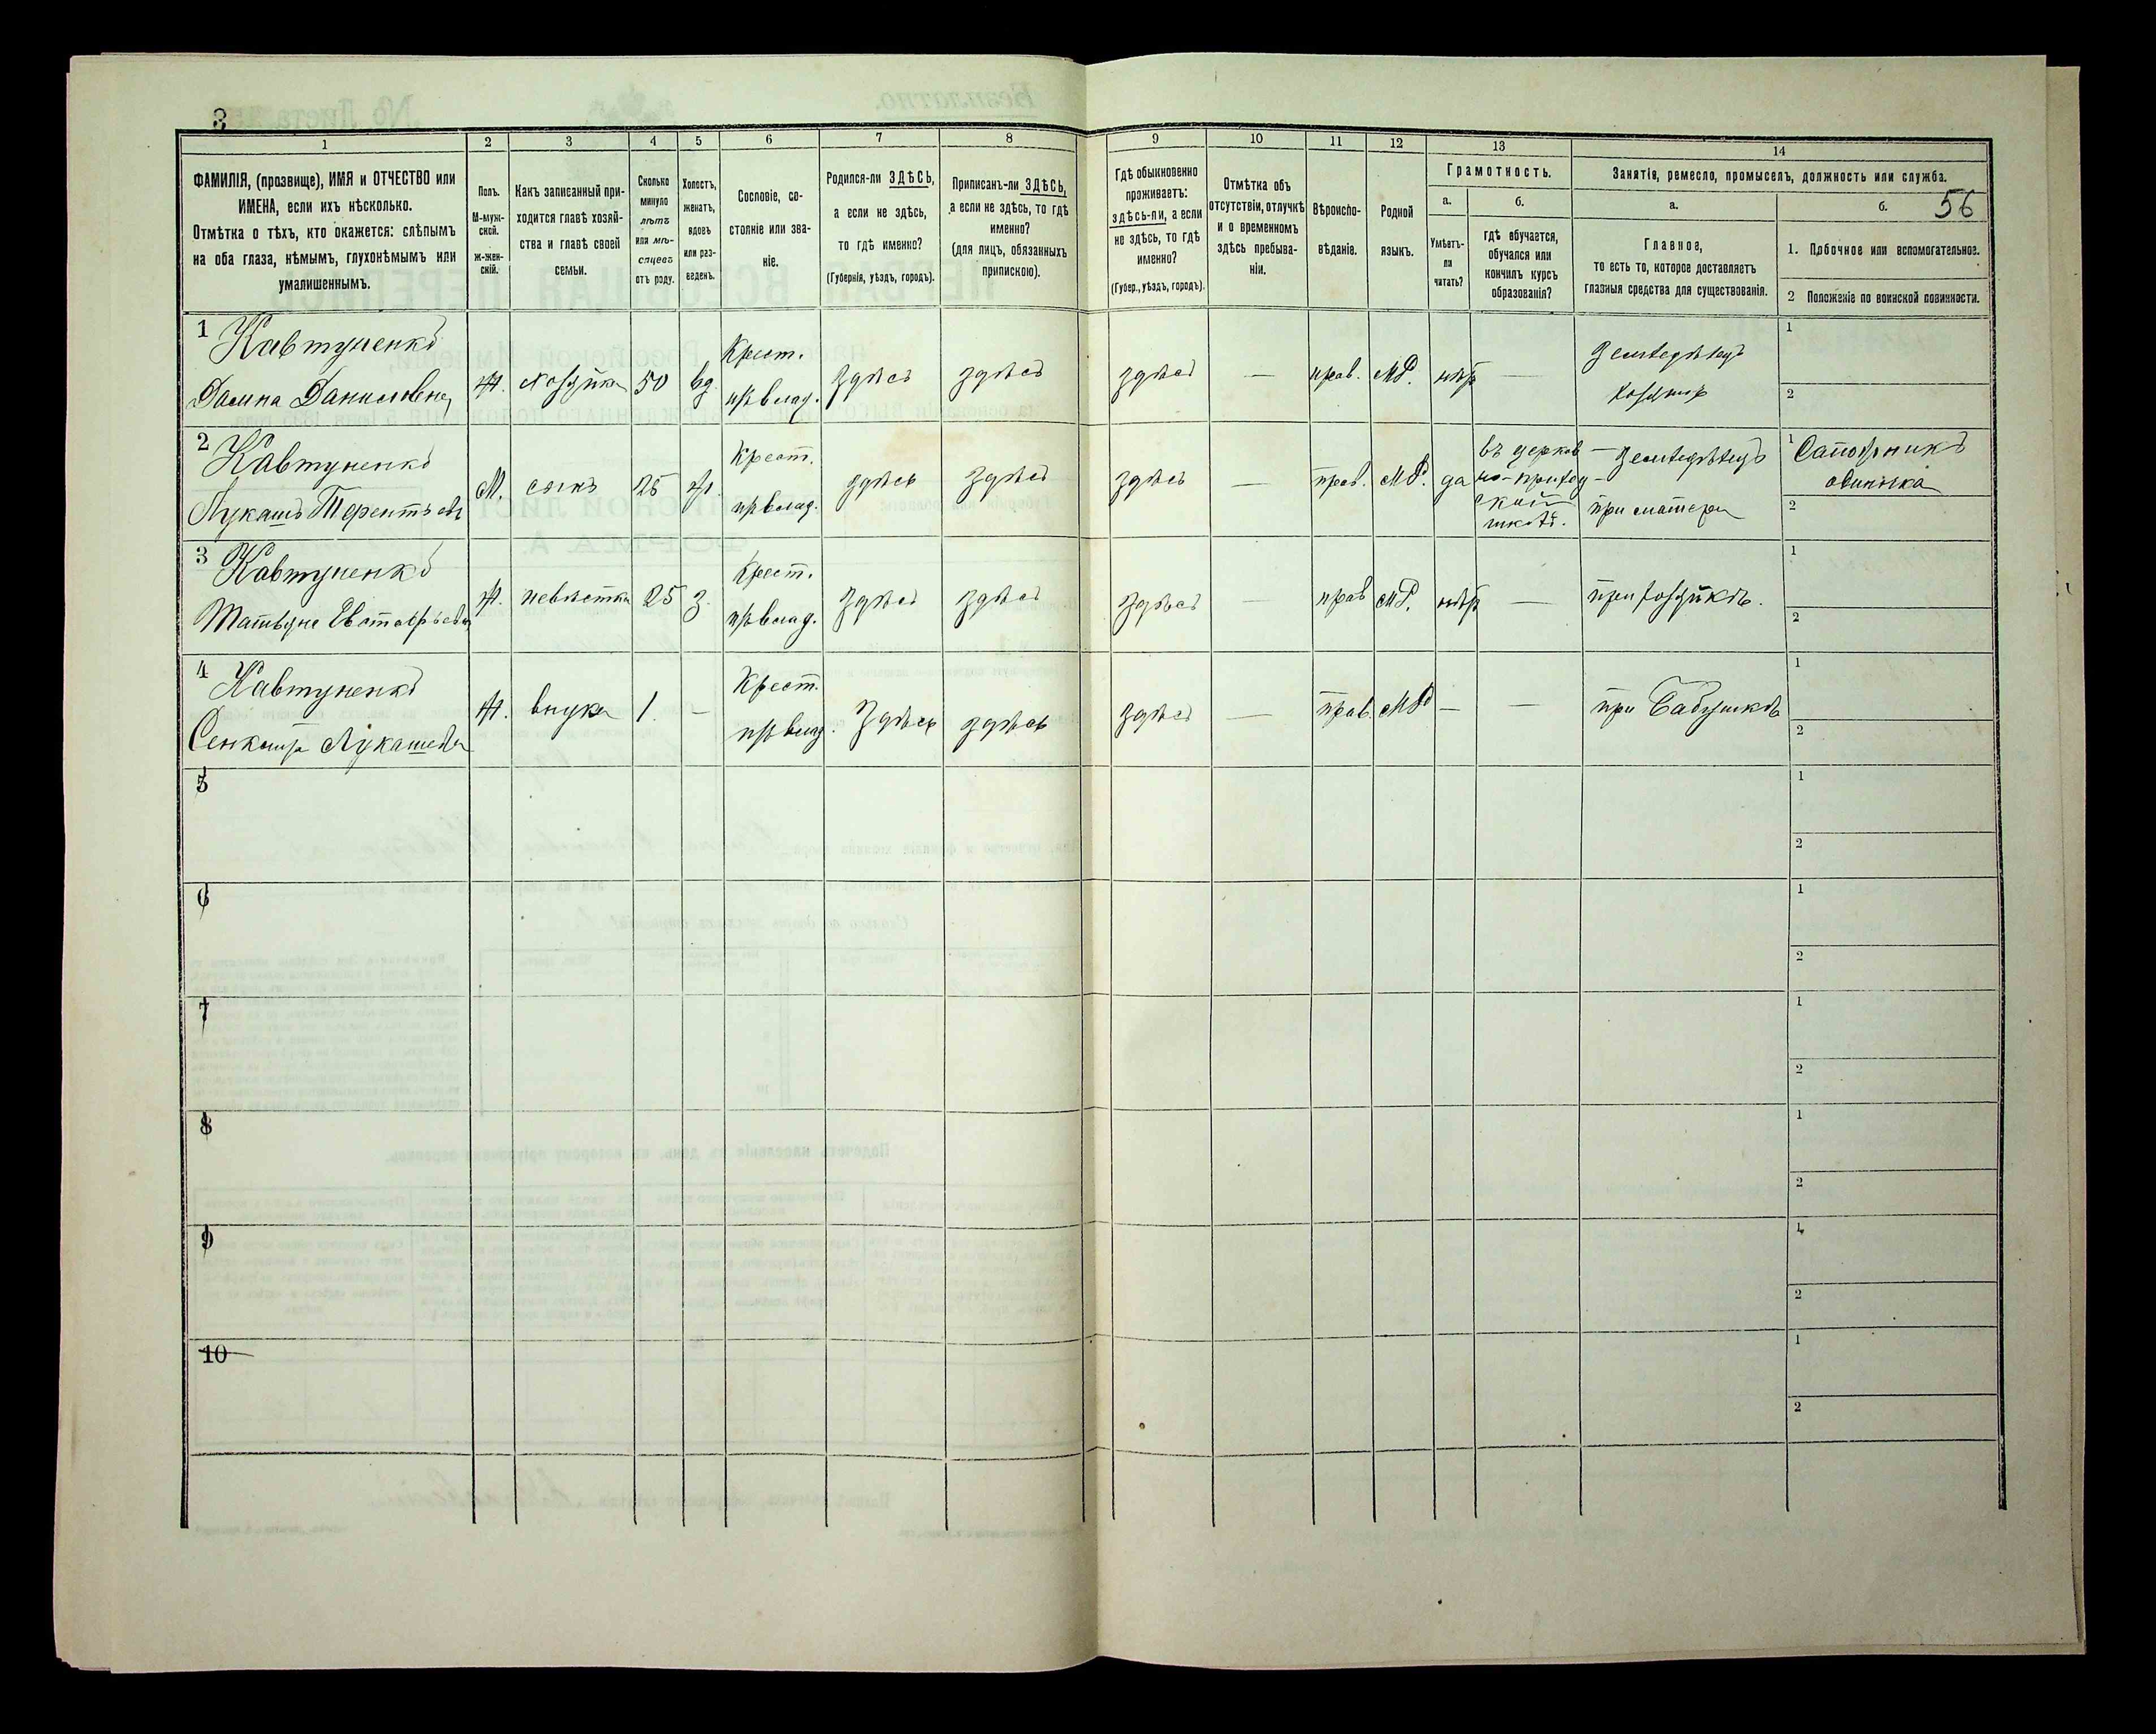 3
1
2
3
4
5
6
7
8
9
10
11
12
13
14
ФАМИЛІЯ, (прозвище), ИМЯ и ОТЧЕСТВО или
ИМЕНА, если ихъ нѣсколько.
Отмѣтка о тѣхъ, кто окажется: слѣпымъ
на оба глаза, нѣмымъ, глухонѣмымъ или
умалишеннымъ.
Полъ.
М-муж-
ской.
Ж-жен-
скій.
Какъ записанный при-
ходится главѣ хозяй-
ства и главѣ своей
семьи.
Сколько
минуло
лѣтъ
или мѣ-
сяцевъ
отъ роду.
Холостъ,
женатъ,
вдовъ
или раз-
веденъ.
Сословіе, со-
стояніе или зва-
ніе.
Родился-ли ЗДѢСЬ,
а если не здѣсь,
то гдѣ именно?
(Губернія, уѣздъ, городъ).
Приписанъ-ли ЗДѢСЬ,
а если не здѣсь, то гдѣ
именно?
(для лицъ, обязанныхъ
припискою).
Гдѣ обыкновенно
проживаетъ:
здѣсь-ли, а если
не здѣсь, то гдѣ
именно?
(Губер., уѣздъ, городъ).
Отмѣтка объ
отсутствіи, отлучкѣ
и о временномъ
здѣсь пребыва-
ніи.
Вѣроиспо-
вѣданіе.
Родной
языкъ.
Грамотность.
а.
Умѣетъ-
ли
читать?
б.
гдѣ обучается,
обучался или
кончилъ курсъ
образованія?
Занятія, ремесло, промыселъ, должность или служба.
а.
Главное,
то есть то, которое доставляетъ
главныя средства для существованія.
б.
56
1. Побочное или вспомогательное.
2 Положеніе по воинской повинности.
1 Кавтуненко
Даниловна
Ж. хозяйка 50 вд.
Крест.
здѣсь здѣсь здѣсь — прав. МР. нѣтъ —
Земледѣлецъ
1
2
2 Кавтуненко
Лукашъ Терентьевъ
М. сынъ 25 ж.
Крест.
здѣсь здѣсь здѣсь — прав. МР. да
въ церков
но-приход-
ской
школѣ.
Земледѣлецъ
при матери
1 Сапожникъ
одиночка
2
3 Кавтуненко
Ж. невѣстка 25 з.
Крест.
здѣсь здѣсь здѣсь — прав МР. нѣтъ —
при хозяйкѣ.
1
2
4 Кавтуненко
Лукашева
Ж. внука 1. —
Крест.
здѣсь здѣсь здѣсь — прав. МР — —
при Бабушкѣ
1
2
5
1
2
6
1
2
7
1
2
8
1
2
9
1
2
10
1
2